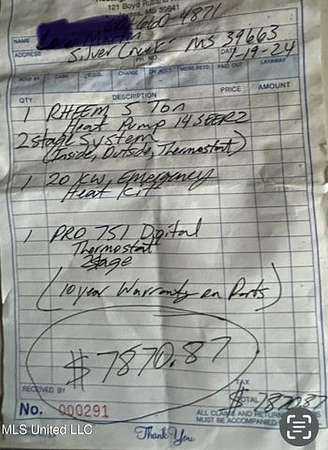 121 Boyd
MS 39641
660-4871
NAME
Silver Creek MS 39663
ADDRESS
PH. NO.
DATE 1-19-24
SOLD BY CASH C.O.D. CHARGE ON ACCT. MDSE. RETD. PAID OUT LAYAWAY
QTY. DESCRIPTION PRICE AMOUNT
1 RHEEM 5 Ton
Heat Pump 14 SEER2
2 stage System
(Inside, Outside, Thermostat)
1 20 KW, Emergency
Heat Kit
1 PRO 751 Digital
Thermostat
2 stage
(10 year Warranty on Parts)
$7870.87
RECEIVED BY
TAX
TOTAL $7870.87
No. 000291
ALL CLAIMS AND RETURNED GOODS
MUST BE ACCOMPANIED
Thank You
MLS United LLC